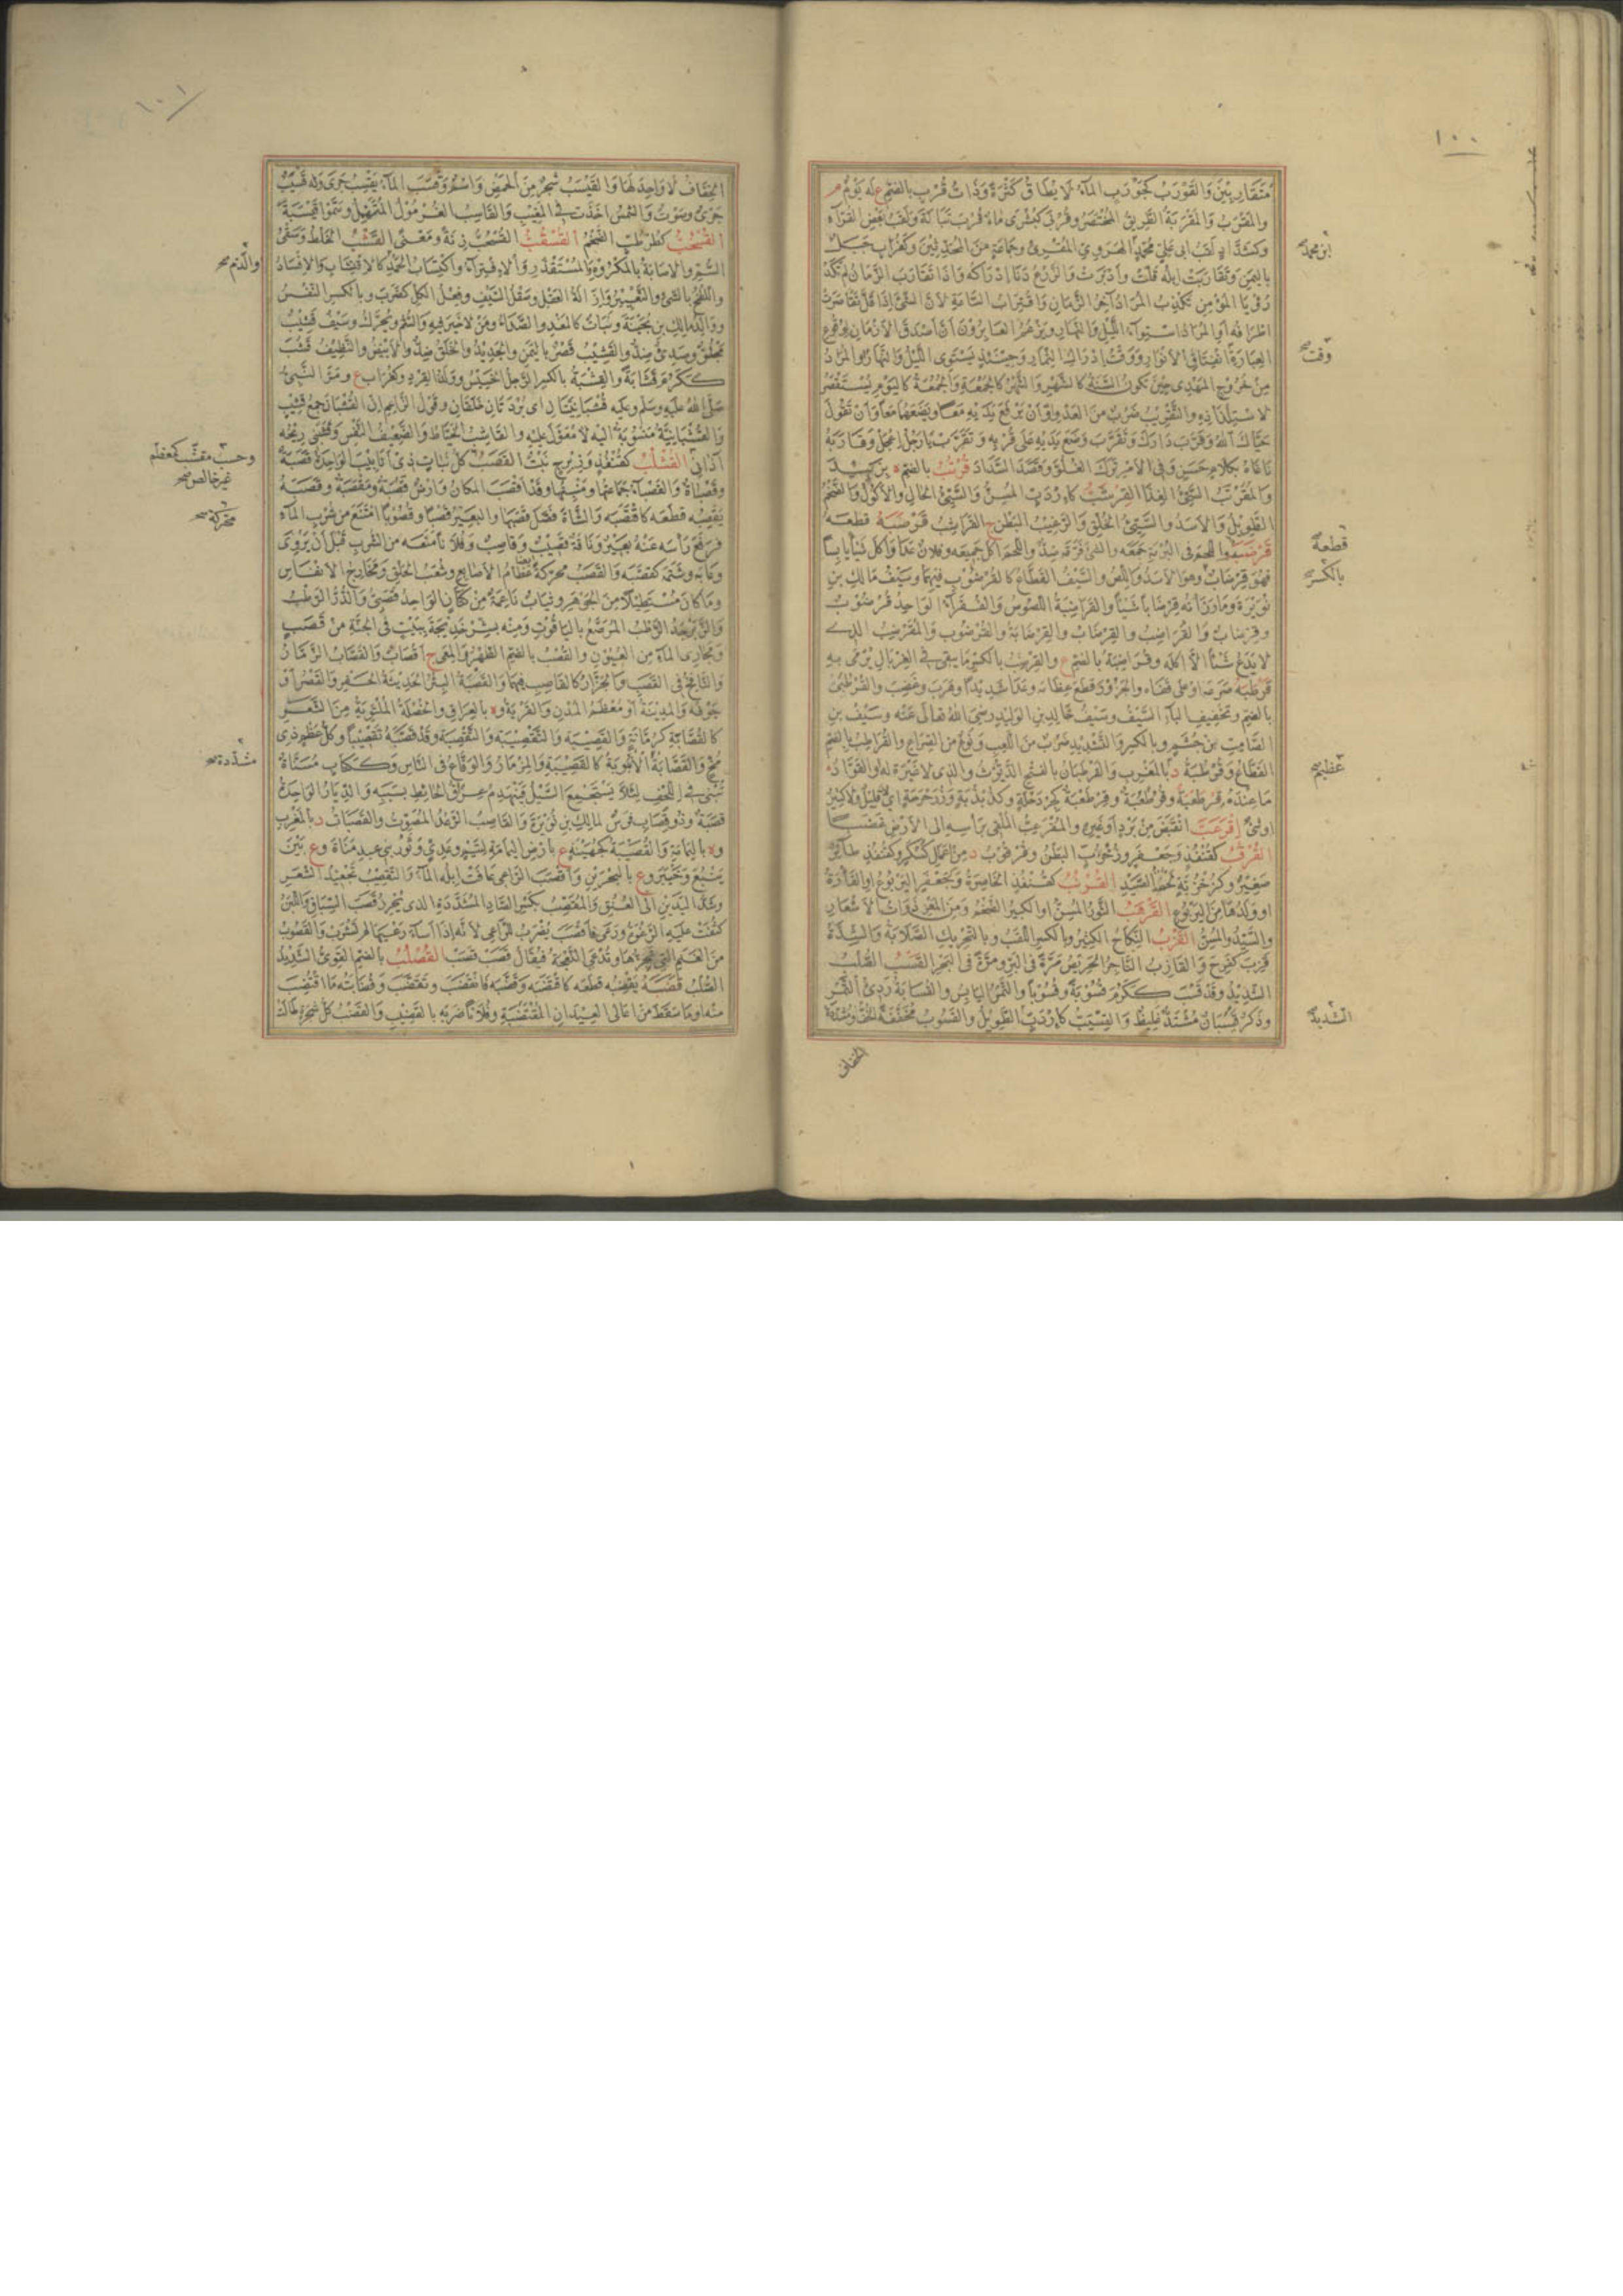 ١٠٠
متقاربين والقورب كجورب الماء لا يطاق كثرة وذات قرب بالضم ع له يوم م
والمقرب والمقربة الطريق المختصر وقربى كبشرى ماء قرب تبالة ولقب بعض القراء
وكشداد لقب ابى على محمد الهروي المقرئ وجماعة من المحدثين وكغراب جبل
باليمن وتقاربت ابله قلت وادبرت والزرع دنا ادراكه واذا تقارب الزمان لم تكد
رؤيا المؤمن تكذب المراد آخر الزمان واقتراب الساعة لان الشئ اذا قل تقاصرت
اطرافه او المراد استواء الليل والنهار ويزعم العابرون ان اصدق الازمان لوقوع
العبارة انفتاق الانوار ووقت ادراك الثمار وحينئذ يستوى الليل والنهار او المراد
من خروج المهدى حين تكون السنة كالشهر والشهر كالجمعة والجمعة كاليوم يستقصر
لاستلذاذه والتقريب ضرب من العدو او ان يرفع يديه معا ويضعهما معا وان تقول
حياك الله وقرب دارك وتقرب وضع يديه على قربه وتقرب يا رجل اعجل وقاربه
ناغاه بكلام حسن وفى الامر ترك الغلو وقصد السداد قرتب بالضم ة بزبيد
والمقرتب السيئ الغذا القرشب كاردب المسن والسيئ الحال والاكول والضخم
الطويل والاسد والسيئ الخلق والرغيب البطن ج القراشب قرصبه قطعه
قرضبه واللحم فى البرمة جمعه والشئ فرقه ضد واللحم اكل جميعه وفلان عدا واكل شيأ يابسا
فهو قرضاب وهو الاسد واللص والسيف القطاع كالقرضوب فيهما وسيف مالك بن
نويرة وما رزأته قرضابا شيئا والقراضبة اللصوص والفقراء الواحد قرضوب
وقرضاب والقراضب والقرضاب والقرضابة والقرضوب والمقرضب الذى
لا يدع شيئا الا اكله وقراضبة بالضم ع والقرضب بالكسر ما يبقى فى الغربال يرمى به
قرطبه صرعه او على قفاه والجزور قطع عظامه وعدا شديدا وهرب وغضب والقرطبى
بالضم وتخفيف الباء السيف وسيف خالد بن الوليد رضى الله تعالى عنه وسيف بن
الصامت بن جشم وبالكسر والتشديد ضرب من اللعب ونوع من الصراع والقراطب بالضم
القطاع وقرطبة د بالمغرب والقرطبان بالفتح الديوث والذى لا غيرة له او القواد
ما عنده قرطعبة وقرطعبة وقرطعبة كجردحلة وكذبذبة وذرحرحة اى لا قليل ولا كثير
او شئ اقرعب انقبض من برد او غيره والمقرعب الملقى براسه الى الارض غضبا
القرقب كقنفذ وجعفر وزخزب البطن وقرقوب د من اعمال كسكر وكقنفذ طائر
صغير وكزخزبة تحفظ الصيد القرنب كقنفذ الخاصرة وكجعفر اليربوع او الفأرة
او ولدها من اليربوع القرهب الثور المسن او الكبير الضخم ومن المعز ذوات الاشعار
والسيد والمسن القزب النكاح الكثير وبالكسر اللقب وبالتحريك الصلابة والشدة
قزب كفرح والقازب التاجر الحريص مرة فى البر ومرة فى البحر القسب الصلب
الشديد وقد قسب ككرم قسوبة وقسوبا والتمر اليابس والقسابة ردئ التمر
وذكر قيسبان مشتد غليظ والقسيب كاردب الطويل والقسوب مخففة الخف ومشددة
الخفاف
ابو محمد
وقت
قطعه
بالكسر
عظيم
الشديد
١٠١
الخفاف لا واحد لها والقيسب شجر من الحمض واسم وقسب الماء يقسب جرى وله قسيب
جرى وصوت والشمس اخذت فى المغيب والقاسب الغرمول المتمهل وسموا قيسبة
القسحب كطرطب الضخم القسقب القسحب زنة ومعنى القشب الخلط وسقى
السم والاصابة بالمكروه والمستقذر والافتراء واكتساب الحمد كالاقتشاب والافساد
واللطخ بالشئ والتعيير وازالة العقل وصقل السيف وفعل الكل كضرب وبالكسر النفس
ووالد مالك بن بحينة ونبات كالمغد والصداء ومن لا خير فيه والسم ويحرك وسيف قشيب
مجلو وصدئ ضد والقشيب قصر باليمن والجديد والخلق ضد والابيض والنظيف قشب
ككرم قشابة والقشبة بالكسر الرجل الخسيس وولد القرد وكغراب ع ومر النبى
صلى الله عليه وسلم وعليه قشبانيتان اى بردتان خلقان وقول الزاعم ان القشبان جمع قشيب
والقشبانية منسوبة اليه لا معول عليه والقاشب الخياط والضعيف النفس وقشبنى ريحه
آذانى القشلب كقنفذ وزبرج نبت القصب كل نبات ذى انابيب الواحدة قصبة
وقصباة والقصباء جماعتها ومنبتها وقد اقصب المكان وارض قصبة ومقصبة وقصبه
يقصبه قطعه كاقتصبه والشاة فصل قصبها والبعير قصبا وقصوبا امتنع من شرب الماء
فرفع رأسه عنه بعير وناقة قصيب وقاصب وفلانا منعه من الشرب قبل ان يروى
وعابه وشتمه كقصبه والقصب محركة عظام الاصابع وشعب الحلق ومخارج الانفاس
وما كان مستطيلا من الجوهر وثياب ناعمة من كتان الواحد قصبى والدر الرطب
والزبرجد الرطب المرصع بالياقوت ومنه بشر خديجة ببيت فى الجنة من قصب
ومجارى الماء من العيون والقصب بالضم الظهر والمعى ج اقصاب والقصاب الزمار
والنافخ فى القصب والجزار كالقاصب فيهما والقصبة البئر الحديثة الحفر والقصر او
جوفه والمدينة او معظم المدن والقرية وة بالعراق والخصلة الملتوية من الشعر
كالقصابة كرمانة والقصيبة والتقصيبة والتقصبة وقد قصبه تقصيبا وكل عظم ذى
مخ والقصابة الانبوبة كالقصيبة والمزمار والوقاع فى الناس وككتاب مسناة
تبنى فى اللحف لئلا يستجمع السيل فينهدم عراق الحائط بسببه والديار الواحدة
قصبة وذو قصاب فرس لمالك بن نويرة والقاصب الرعد المصوت والقصبات د بالمغرب
وة باليمامة والقصيبة كجهينة ع بارض اليمامة لتيم وعدى وثور بنى عبد مناة وع بين
ينبع وخيبر وع بالبحرين واقصب الراعى عافت ابله الماء والتقصيب تجعيد الشعر
وشد اليدين الى العنق والمقصب بكسر الصاد المشددة الذى يحرز قصب السباق واللبن
كثفت عليه الرغوة ورعى فاقصب يضرب للراعى لانه اذا اساء رعيها لم تشرب والقصوب
من الغنم التى تجزها وتدعى النعجة فيقال قصب قصب القصلب بالضم القوى الشديد
الصلب قضبه يقضبه قطعه كاقتضبه وقضبه فانقضب وتقضب وقضابته ما اقتضب
منه او ما سقط من اعالى العيدان المقتضبة وفلانا ضربه بالقضيب والقضب كل شجرة طالت
والذم صح
وحسب مقشب كمعظم
غير خالص صح
محركة صح
مشددة صح